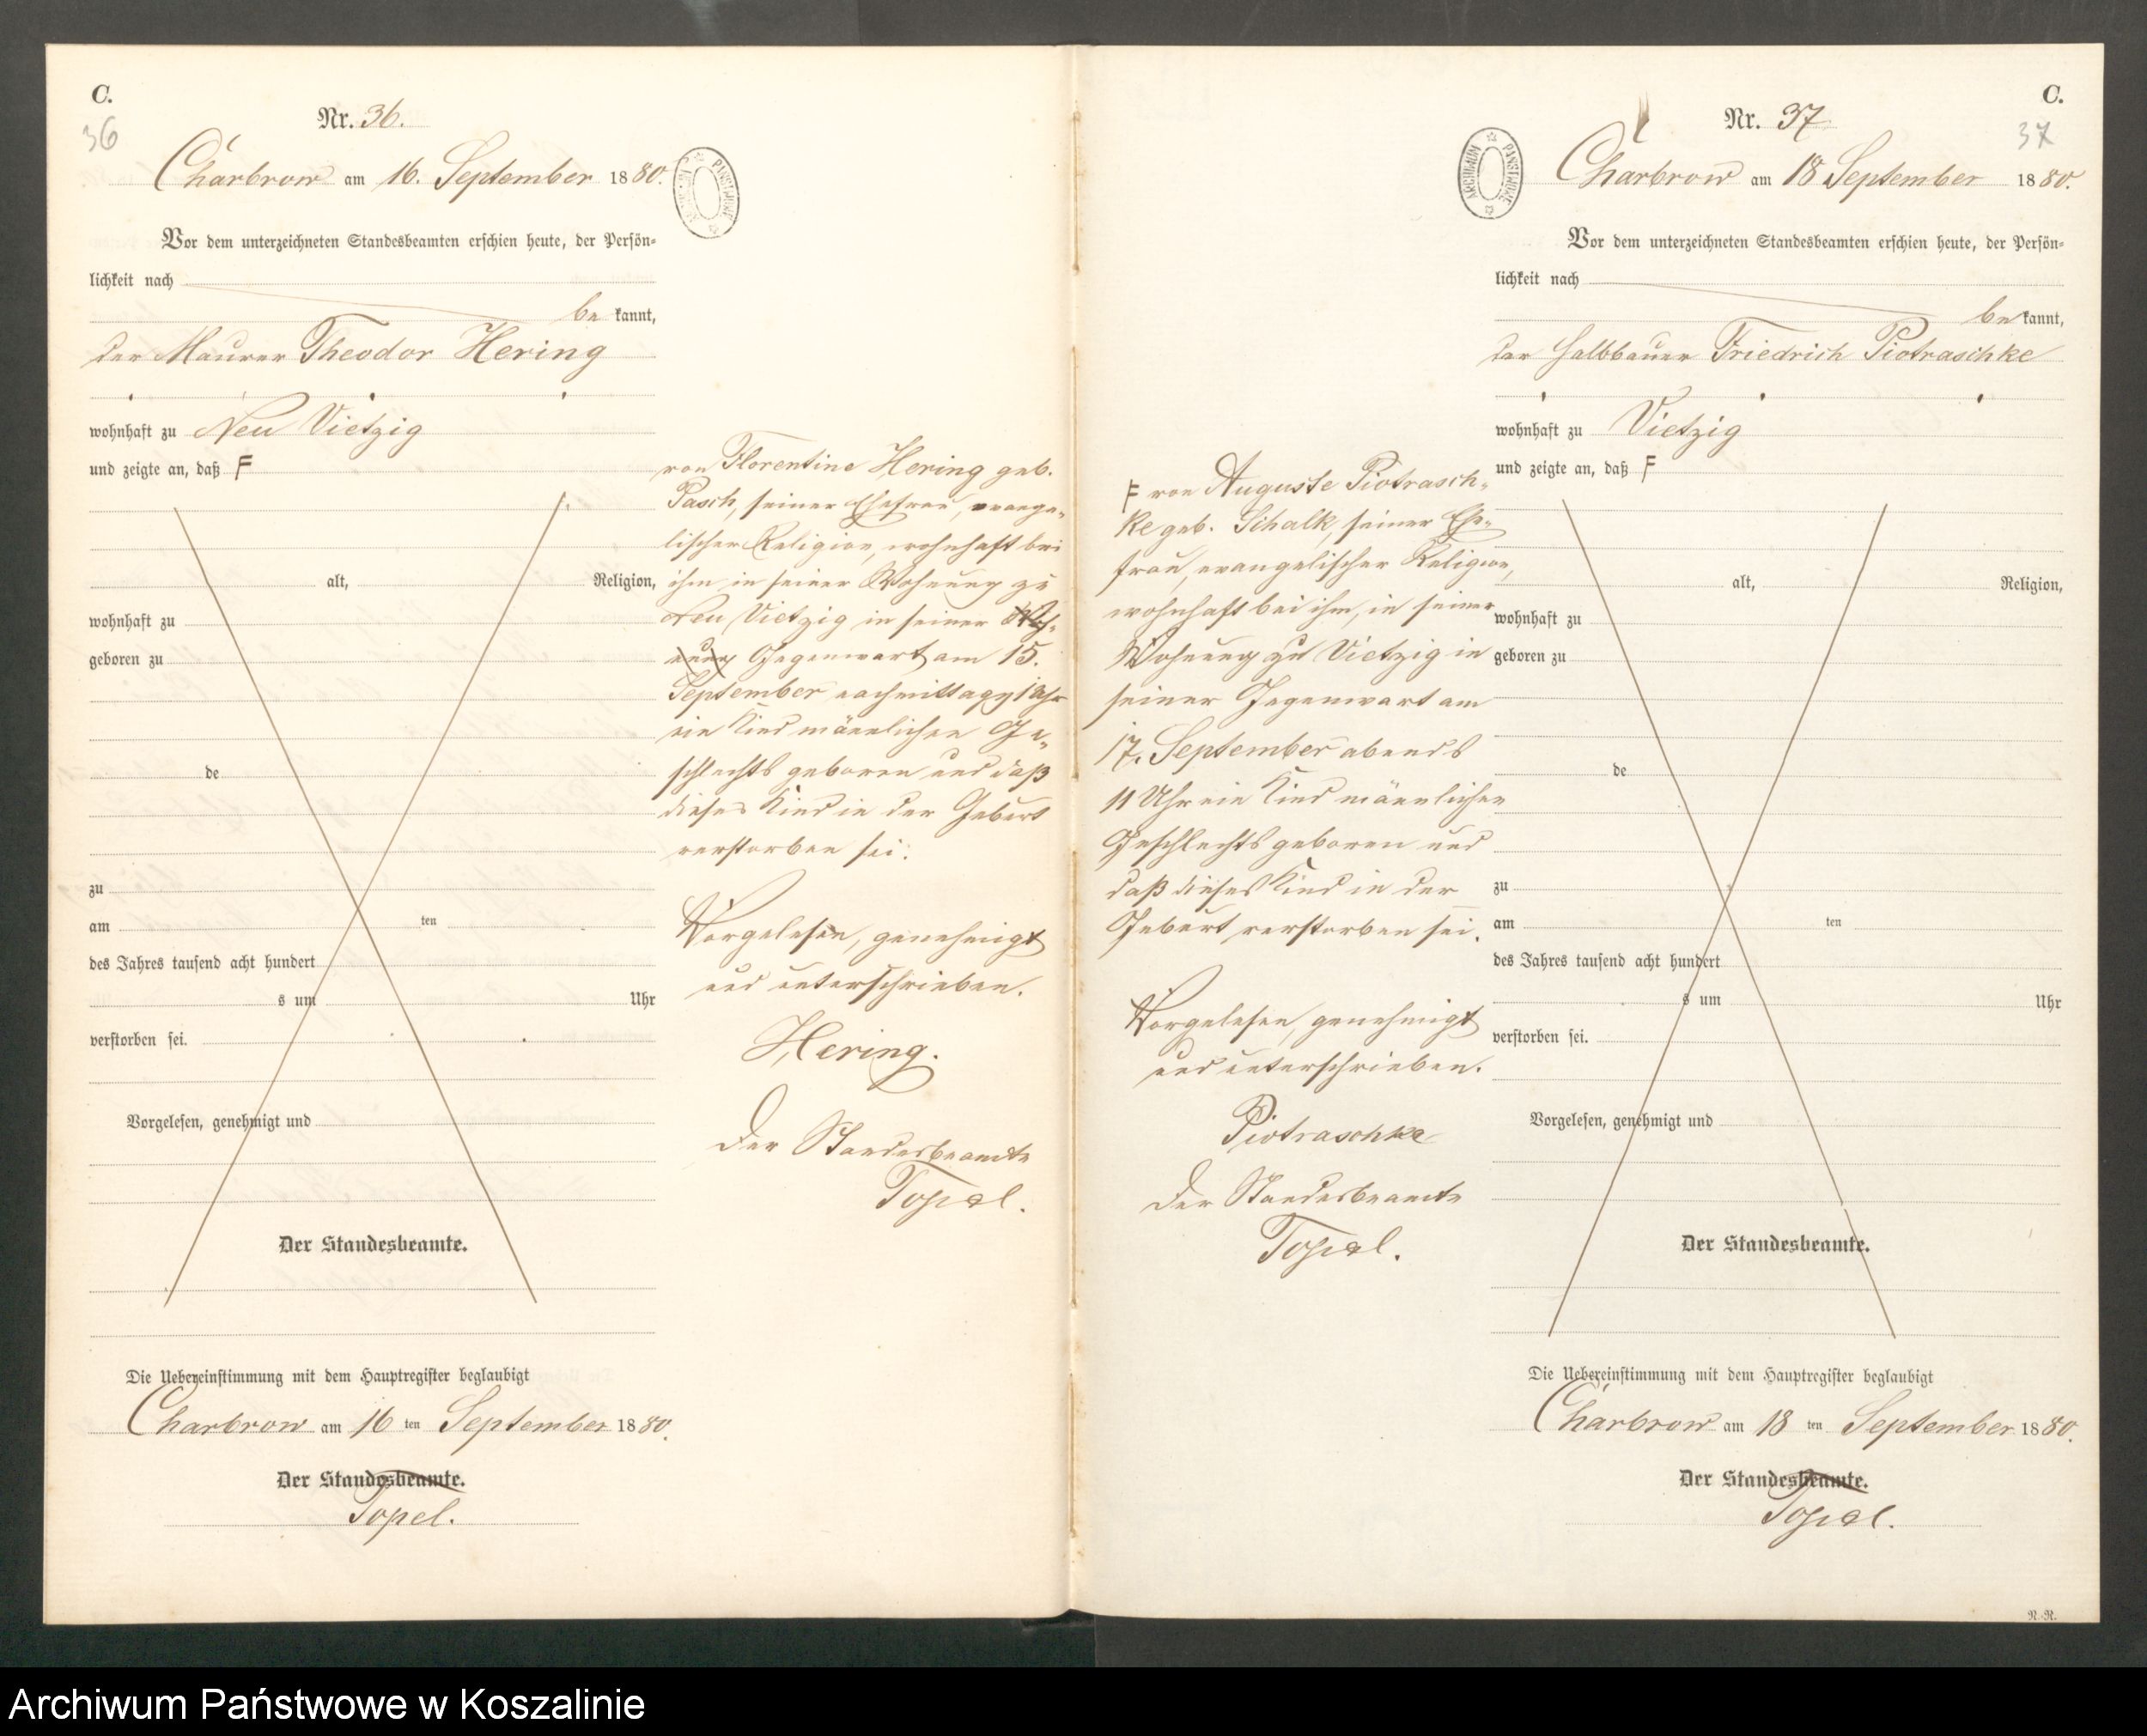 C.
36
Nr. 36.
Charbrow am 16. September 1880.
Vor dem unterzeichneten Standesbeamten erschien heute, der Persön=
lichkeit nach
be kannt,
der Maurer Theodor Hering
wohnhaft zu Neu Vietzig
und zeigte an, daß F
alt, Religion,
wohnhaft zu
geboren zu
de
zu
am ten
des Jahres tausend acht hundert
s um Uhr
verstorben sei.
Vorgelesen, genehmigt und
Der Standesbeamte.
Die Uebereinstimmung mit dem Hauptregister beglaubigt
Charbrow am 16 ten September 1880.
Der Standesbeamte.
Topel.
ARCHIWUM PAŃSTWOWE
von Florentine Hering geb.
Pasch, seiner Ehefrau, evange=
lischer Religion, wohnhaft bei
ihm in seiner Wohnung zu
Neu Vietzig in seiner Woh=
nung Gegenwart am 15.
September nachmittags 1 Uhr
ein Kind männlichen Ge=
schlechts geboren und daß
dieses Kind in der Geburt
verstorben sei.
Vorgelesen, genehmigt
und unterschrieben.
Hering.
Der Standesbeamte
Topel.
F von Auguste Piotrasch=
ke geb. Schalk, seiner Ehe=
frau, evangelischer Religion,
wohnhaft bei ihm, in seiner
Wohnung zu Vietzig in
seiner Gegenwart am
17. September abends
11 Uhr ein Kind männlichen
Geschlechts geboren und
daß dieses Kind in der
Geburt verstorben sei.
Vorgelesen, genehmigt
und unterschrieben.
Piotraschke
Der Standesbeamte
Topel.
ARCHIWUM PAŃSTWOWE
C.
37
Nr. 37
Charbrow am 18 September 1880.
Vor dem unterzeichneten Standesbeamten erschien heute, der Persön=
lichkeit nach
be kannt,
der Halbbauer Friedrich Piotraschke
wohnhaft zu Vietzig
und zeigte an, daß F
alt, Religion,
wohnhaft zu
geboren zu
de
zu
am ten
des Jahres tausend acht hundert
s um Uhr
verstorben sei.
Vorgelesen, genehmigt und
Der Standesbeamte.
Die Uebereinstimmung mit dem Hauptregister beglaubigt
Charbrow am 18 ten September 1880.
Der Standesbeamte.
Topel.
N.-N.
Archiwum Państwowe w Koszalinie